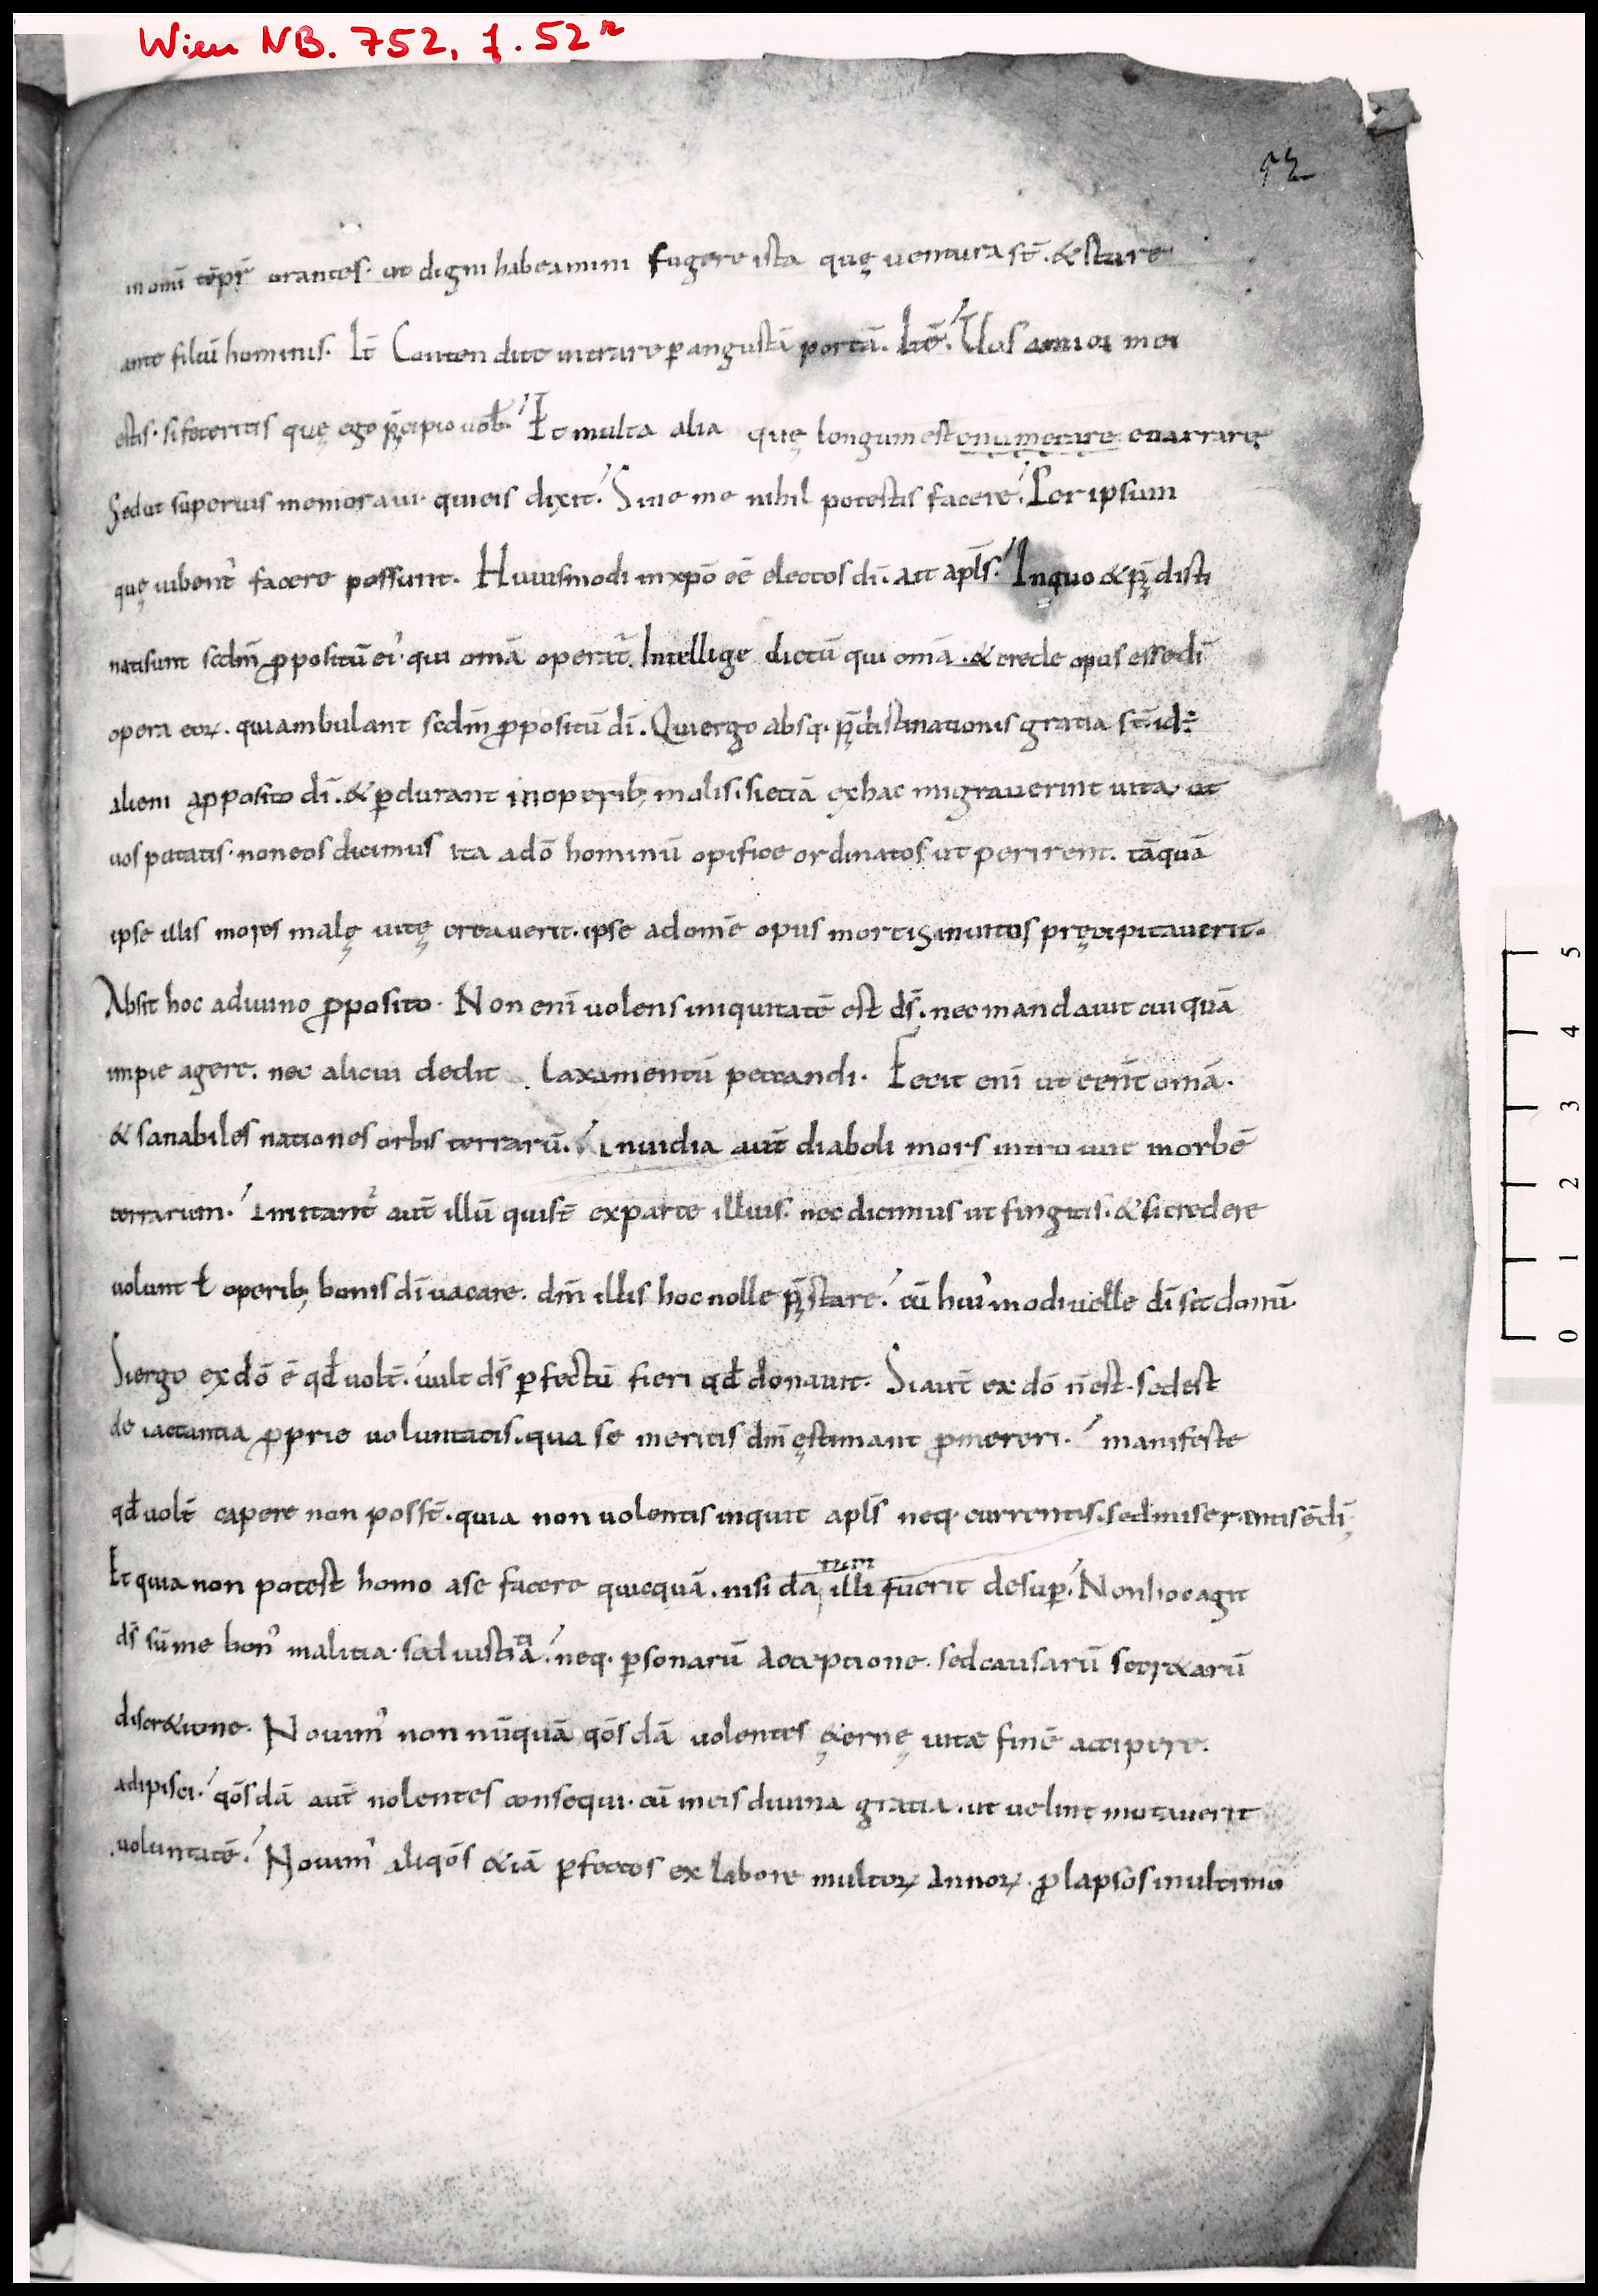 Wien NB. 752, f. 52r
52
in omī tēpr̄ orantes. ut digni habeamini fugere ista quę uentura st̄. & stare
ante filiū hominis. It̄ Contendite intrare p angustā portā. Itē. Uos amici mei
estis. si feceritis quę ego p̄cipio uob̄. Et multa alia quę longum est enumerare enarrare
Sed ut superius memoraui. qui eis dixit. Sine me nihil potestis facere. Per ipsum
quę iubent̄ facere possunt. Huiusmodi in xp̄o ēē electos dī. ait apl̄s. In quo & p̄ disti
nati sunt scdm̄ ppositū ei'. qui omā operat̄. Intellige dictū qui omā. & crede opus esse dī
opera eoꝝ. qui ambulant scdm̄ ppositū dī. Qui ergo absq. p̄distinationis gratia st̄ id÷
alieni a pposito dī. & pdurant in operib; malis. si etiā ex hac migrauerint uita ut
uos putatis. non eos dicimus ita a dō hominū opifice ordinatos ut perirent. tāquā
ipse illis mores malę uitę creauerit. ipse ad omē opus mortis inuitos pręcipitauerit.
Absit hoc a diuino pposito. Non enī uolens iniquitatē est ds̄. nec mandauit cuiquā
impie agere. nec alicui dedit laxamentū peccandi. Fecit enī ut eent̄ omā.
& sanabiles nationes orbis terrarū. Inuidia aut̄ diaboli mors introiuit in orbē
terrarum. Imitant̄ aut̄ illū qui st̄ ex parte illius. nec dicimus ut fingitis. & si credere
uolunt ł operib; bonis dī uacare. dm̄ illis hoc nolle p̄stare. cū hui' modi uelle dī sit donū.
Si ergo ex dō ē qd̄ uolt̄. uult ds̄ pfectū fieri qd̄ donauit. Si aut̄ ex dō n̄ est. sed est
de iactantia pprie uoluntatis. qua se meritis dm̄ ęstimant pmereri. manifeste
qd̄ uolt̄ capere non posst̄. quia non uolentis inquit apl̄s neq. currentis. sed miserantis ē dī;
Et quia non potest homo a se facere quicquā. nisi datum illi fuerit desup. Non hoc agit
ds̄ sūme bon' malitia. sed iustitia. neq. psonarū acceptione. sed causarū secr&arū
discr&ione. Nouim' non nūquā qōsdā uolentes &ernę uitæ finē accipere.
adipisci. qōsdā aut̄ nolentes consequi. cū in eis diuina gratia. ut uelint mutauerit
uoluntatē. Nouim' aliqōs &iā pfectos ex labore multoꝝ annoꝝ. plapsos in ultimo
0 1 2 3 4 5